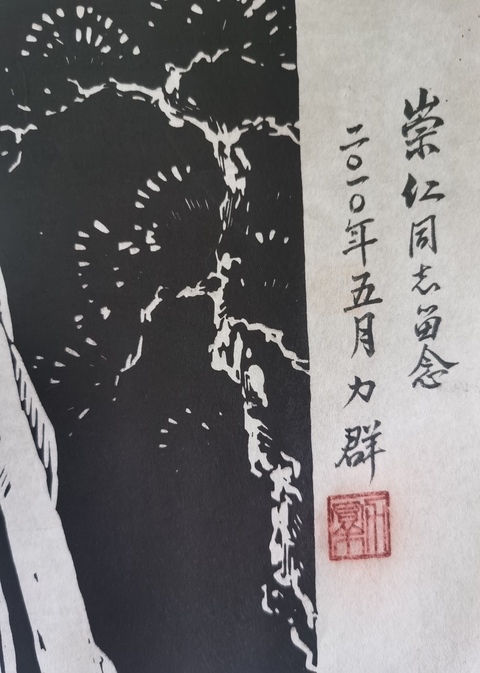 崇仁同志留念
二〇一〇年五月 力群